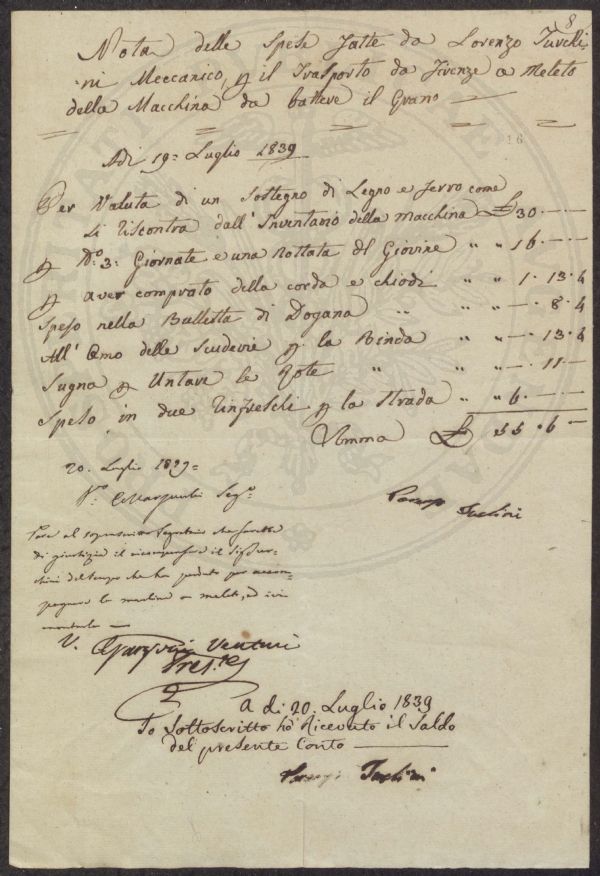 8
Nota delle Spese fatte da Lorenzo Turchi
ni Meccanico, p il Trasporto da Firenze a Meleto
della Macchina da battere il Grano
16
Adi 19= Luglio 1839
Per Valuta di un Sostegno di Legno e ferro come
si riscontra dall'Inventario della Macchina £ 30.--
p N.o 3: Giornate e una Nottata del Giovine " " 16.--
p aver comprato della corda e chiodi " " 1. 13. 4
Speso nella Bulletta di Dogana " " " -. 8. 4
All'Omo delle Scuderie p. la Binda " " -. 13. 4
Sugna p Untare le Rote " " " -. 11 -
Speso in due Rinfreschi p la Strada " " 6.--
Somma £ 55. 6 -
20. Luglio 1839=
V.o Seg.o
Turchini
Pare al soprascritto Segretario che sarebbe
di giustizia il ricompensare il Sig. Tur-
chini del tempo che ha perduto per accom-
pagnare la macchina a Meleto, ed ivi
montarla
V. Venturi
Pres.te
A di 20. Luglio 1839
Io Sottoscritto hò Ricevuto il Saldo
del presente Conto
Turchini